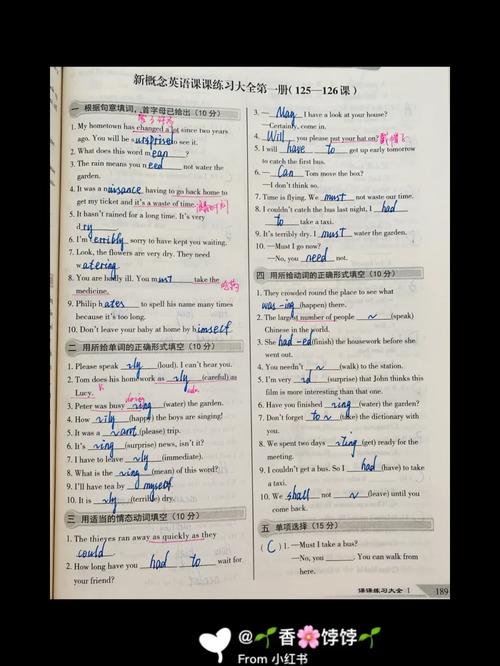 新概念英语课课练习大全第一册(125—126课)
一 根据句意填词,首字母已给出(10分)
1. My hometown has changed a lot since two years
ago. You will be surprised to see it.
2. What does this word mean?
3. The rain means you need not water the
garden.
4. It was a nuisance having to go back home to
get my ticket and it's a waste of time. 浪费时间
5. It hasn't rained for a long time. It's very
dry
6. I'm terribly sorry to have kept you waiting.
7. Look, the flowers are very dry. They need
watering
8. You are badly ill. You must take the
medicine. 吃药
9. Philip hates to spell his name many times
because it's too long.
10. Don't leave your baby at home by himself
二 用所给单词的正确形式填空(10分)
1. Please speak ~ly (loud). I can't hear you.
2. Tom does his homework as ~ly (careful) as
Lucy. v. adv.
doing
3. Peter was busy ~ing (water) the garden.
4. How ~ily (happy) the boys are singing!
5. It was a ~ant (please) trip.
6. It's ~ing (surprise) news, isn't it?
7. I have to leave ~ly (immediate).
8. What is the ~ing (mean) of this word?
9. I'll have tea by myself
10. It is ~ly (terrible) dry.
三 用适当的情态动词填空(10分)
1. The thieves ran away as quickly as they
could
2. How long have you had to wait for
your friend?
3. — May I have a look at your house?
—Certainly, come in.
4. Will you please put your hat on? 戴帽子
5. I will have to get up early tomorrow
to catch the first bus.
6. — Can Tom move the box?
—I don't think so.
7. Time is flying. We must not waste our time.
8. I couldn't catch the bus last night, I had
to take a taxi.
9. It's terribly dry. I must water the garden.
10. —Must I go now?
—No, you need not.
四 用所给动词的正确形式填空(10分)
1. They crowded round the place to see what
was ~ing (happen) there.
2. The largest number of people ~ (speak)
Chinese in the world.
3. She had ~ed (finish) the housework before she
went out.
4. You needn't ~ (walk) to the station.
5. I'm very ~d (surprise) that John thinks this
film is more interesting than that one.
6. Have you finished ~ing (water) the garden?
7. Don't forget to ~ (take) the dictionary with
you.
8. We spent two days ~ting (get) ready for the
meeting.
9. I couldn't get a bus. So I had (have) to take
a taxi.
10. We shall not ~ (leave) until you
come back.
五 单项选择(15分)
( C ) 1. —Must I take a bus?
—No, you ____. You can walk from
here.
课课练习大全·1 189
@🌱香🌸饽饽🌱
From 小红书